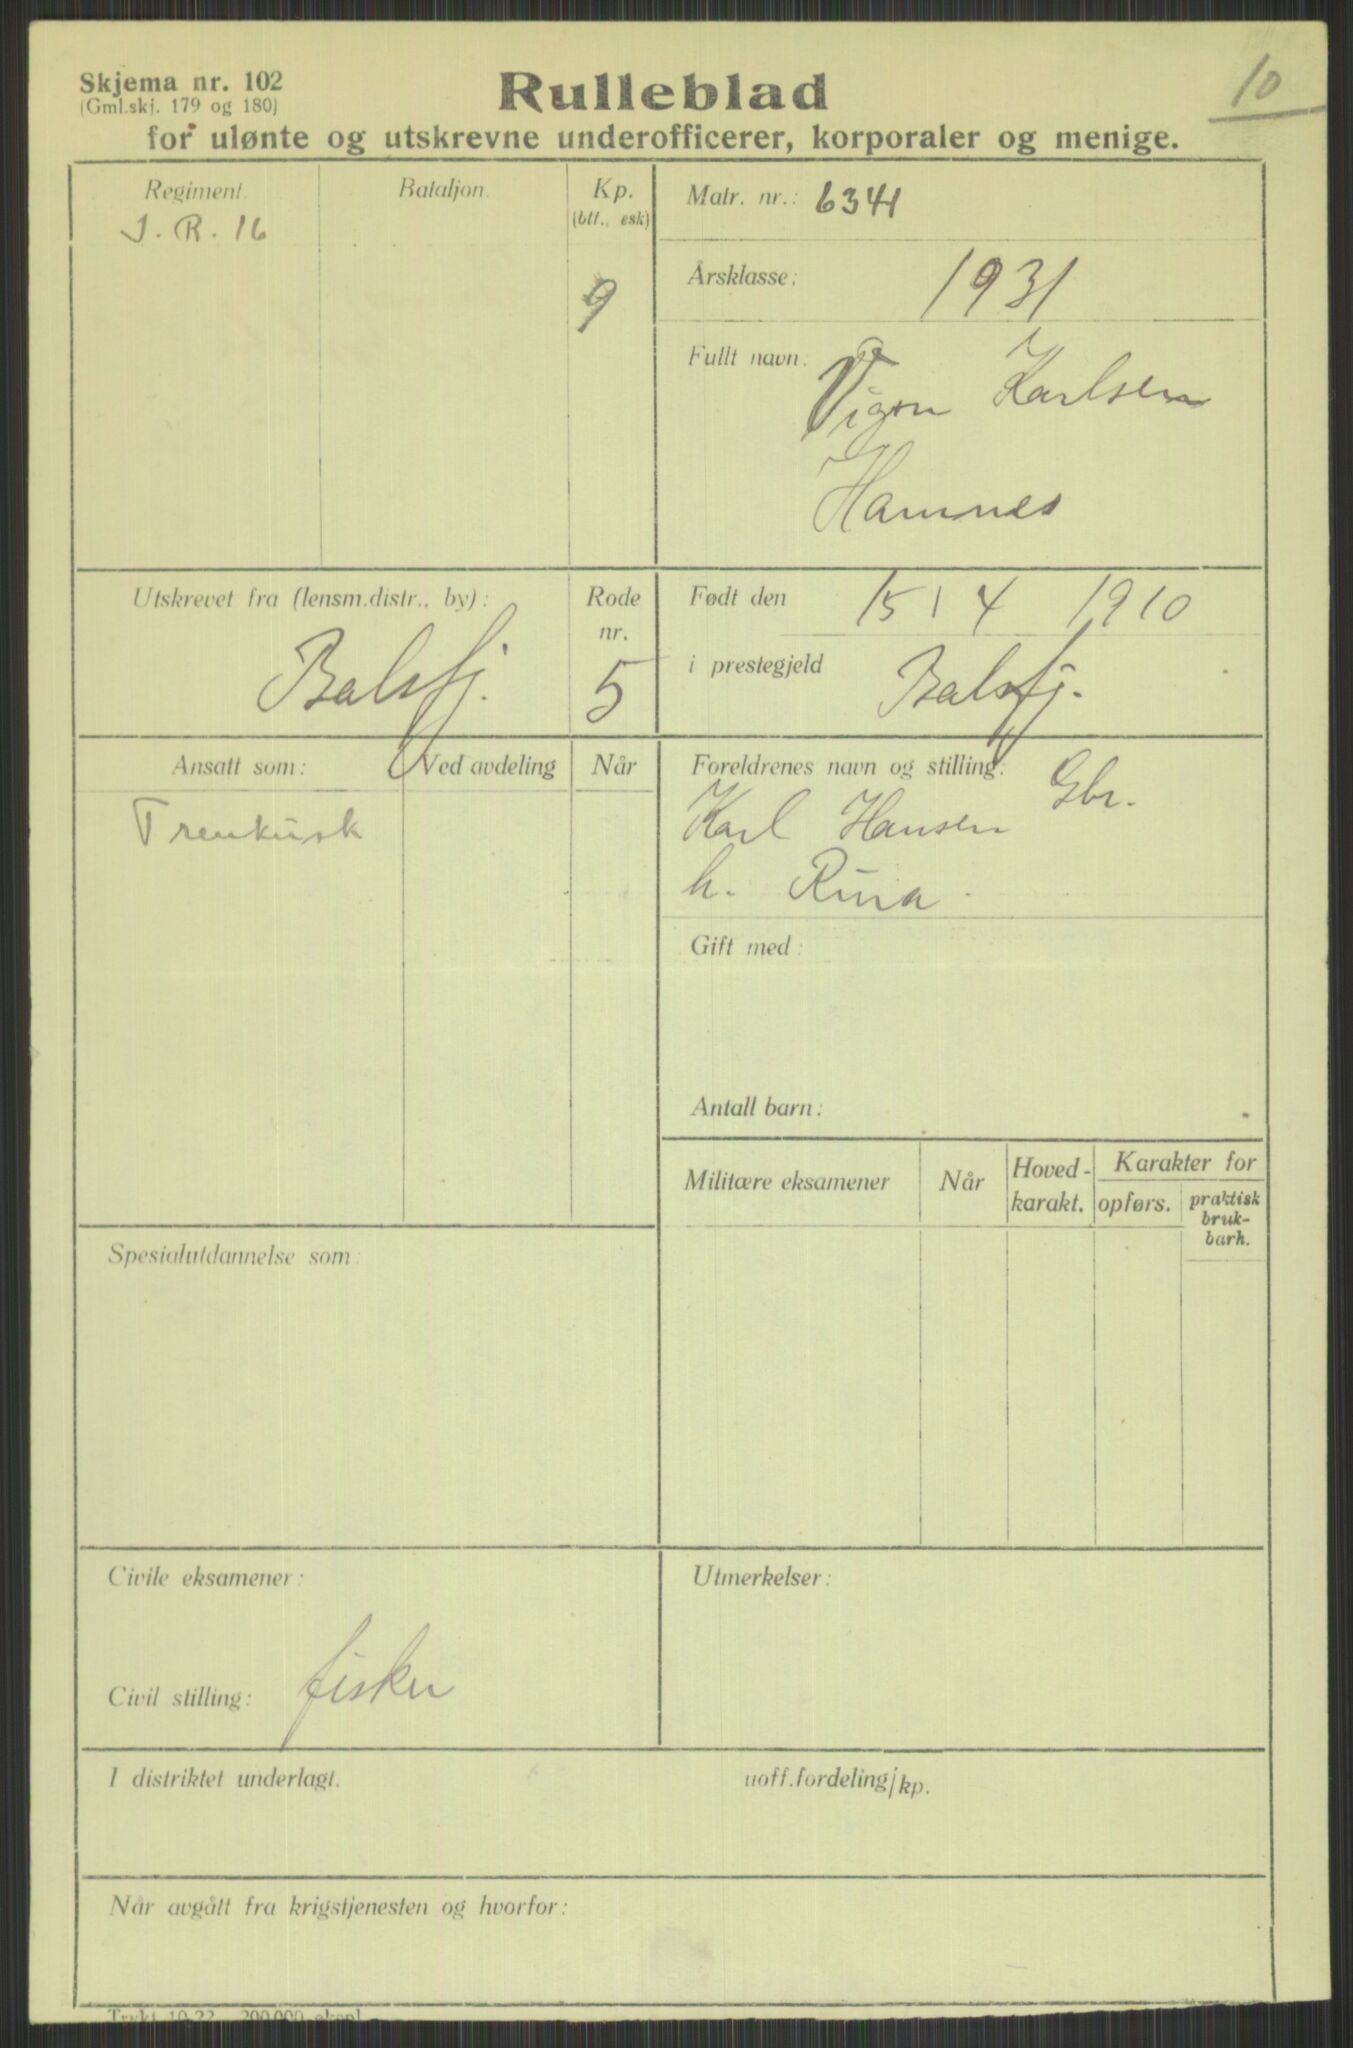 10
Skjema nr. 102
(Gml.skj. 179 og 180)
Rulleblad
for ulønte og utskrevne underofficerer, korporaler og menige.
Regiment.
J. R. 16
Bataljon.
Kp.
(btt., esk)
9
Matr. nr.: 6341
Årsklasse: 1931
Fullt navn: Karlsen
Hamnes
Utskrevet fra (lensm.distr., by):
Balsfj.
Rode
nr.
5
Født den 15 / 4 1910
i prestegjeld Balsfj.
Ansatt som:
Ved avdeling
Når
Trenkusk
Foreldrenes navn og stilling:
Gbr.
Karl Hansen
h. Rina
Gift med:
Antall barn:
Militære eksamener
Når
Hoved-
karakt.
Karakter for
opførs.
praktisk
bruk-
barh.
Spesialutdannelse som:
Civile eksamener:
Civil stilling: fisker
Utmerkelser:
I distriktet underlagt.
uoff.fordeling/kp.
Når avgått fra krigstjenesten og hvorfor:
Trykt 10-22 200.000 ekspl.